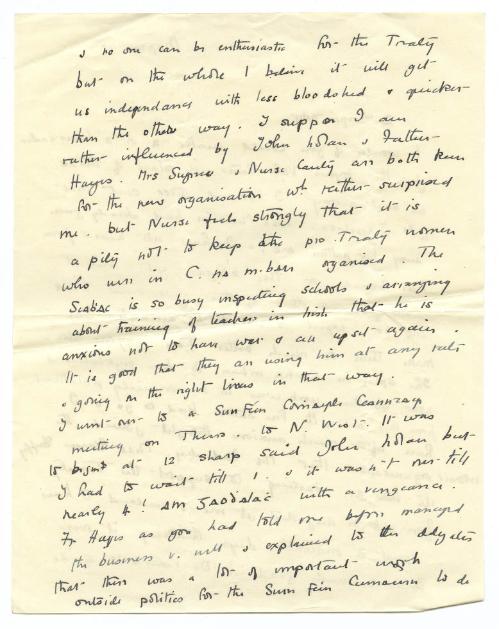 & no one can be enthusiastic for the Treaty
but on the whole I believe it will get
us independance with less bloodshed & quicker
than the other way. I suppose I am
rather influenced by John Nolan & Father
Hayes. Mrs & Nurse are both keen
for the new organisation wh rather surprised
me. but Nurse feels strongly that it is
a pity not to keep the pro. Treaty women
who were in C. na mBan organised. The
is so busy inspecting schools & arranging
about training of teachers in Irish that he is
anxious not to have war & all upset again.
It is good that they are using him at any rate
& going on the right lines in that way.
I went over to a Sinn Féin Comairle Ceanntair
meeting on Thurs. to N. West. It was
to begin at 12 sharp said John Nolan but
I had to wait till 1. & it was n't over till
nearly 4! Am Gaodalac with a vengeance.
Fr Hayes as you had told me before managed
the business v. well & explained to the delegates
that there was a lot of important work
outside politics for the Sinn Féin Cumainn to do